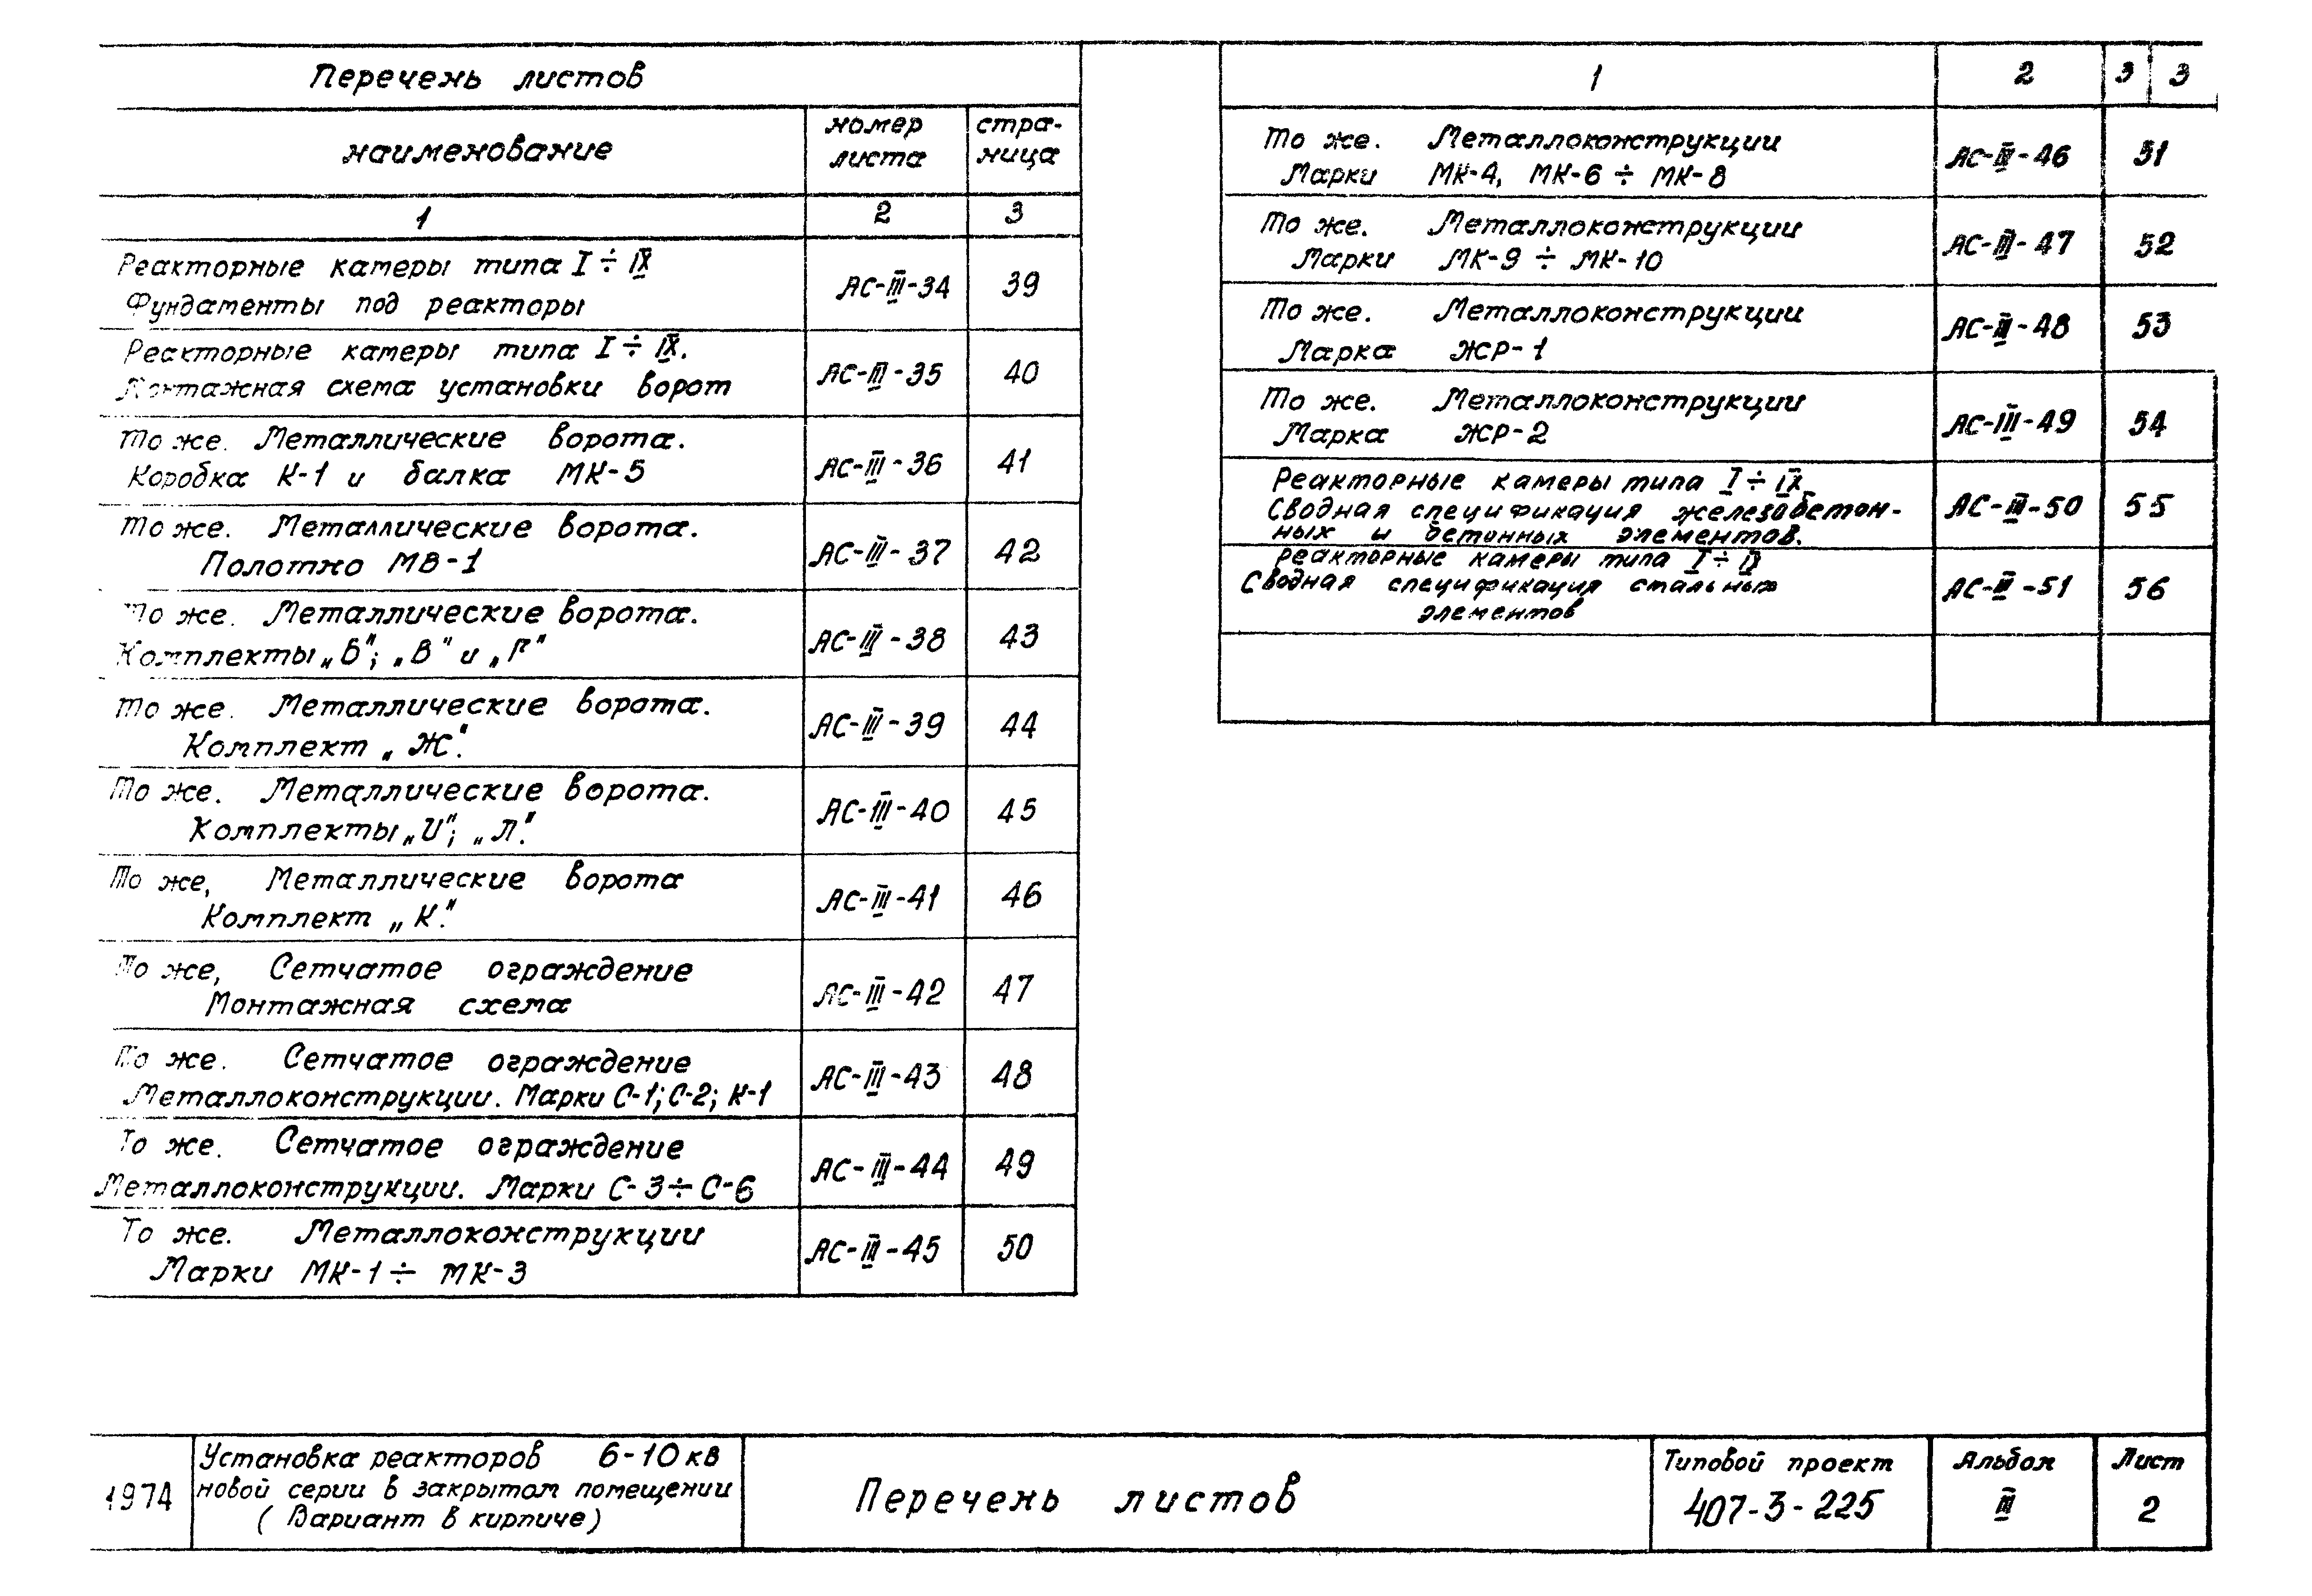 Перечень листов
наименование
номер листа
стра-ница
1 2 3
Реакторные камеры типа I ÷ IX
Фундаменты под реакторы
АС-III-34 39
Реакторные камеры типа I ÷ IX.
Монтажная схема установки ворот
АС-III-35 40
То же. Металлические ворота.
Коробка К-1 и балка МК-5
АС-III-36 41
То же. Металлические ворота.
Полотно МВ-1
АС-III-37 42
То же. Металлические ворота.
Комплекты „Б"; „В" и „Г"
АС-III-38 43
То же. Металлические ворота.
Комплект „Ж".
АС-III-39 44
То же. Металлические ворота.
Комплекты „И"; „Л".
АС-III-40 45
То же, Металлические ворота
Комплект „К".
АС-III-41 46
То же, Сетчатое ограждение
Монтажная схема
АС-III-42 47
То же. Сетчатое ограждение
Металлоконструкции. Марки С-1; С-2; К-1
АС-III-43 48
То же. Сетчатое ограждение
Металлоконструкции. Марки С-3 ÷ С-6
АС-III-44 49
То же. Металлоконструкции
Марки МК-1 ÷ МК-3
АС-III-45 50
1 2 3 3
То же. Металлоконструкции
Марки МК-4, МК-6 ÷ МК-8
АС-III-46 51
То же. Металлоконструкции
Марки МК-9 ÷ МК-10
АС-III-47 52
То же. Металлоконструкции
Марка ЖР-1
АС-III-48 53
То же. Металлоконструкции
Марка ЖР-2
АС-III-49 54
Реакторные камеры типа I ÷ IX.
Сводная спецификация железобетон-
ных и бетонных элементов.
АС-III-50 55
Реакторные камеры типа I ÷ IX
Сводная спецификация стальных
элементов
АС-III-51 56
1974
Установка реакторов 6-10 кв
новой серии в закрытом помещении
( Вариант в кирпиче)
Перечень листов
Типовой проект
407-3-225
Альбом
III
Лист
2